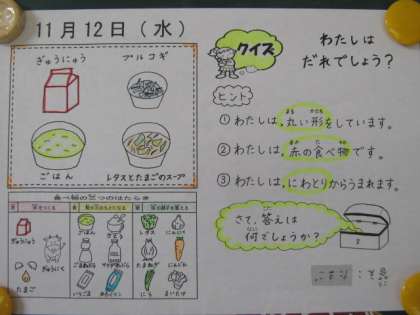 11月12日(水)
ぎゅうにゅう
プルコギ
ごはん
レタスとたまごのスープ
食べ物の三つのはたらき
ぎゅうにゅう
ぎゅうにく
たまご
ごはん
さとう
レタス
にんじん
たまねぎ
にんにく
にら
クイズ
わたしは
だれでしょう?
ヒント
① わたしは、丸い形をしています。
② わたしは、赤の食べ物です。
③ わたしは、にわとりからうまれます。
さて、答えは
何でしょうか?